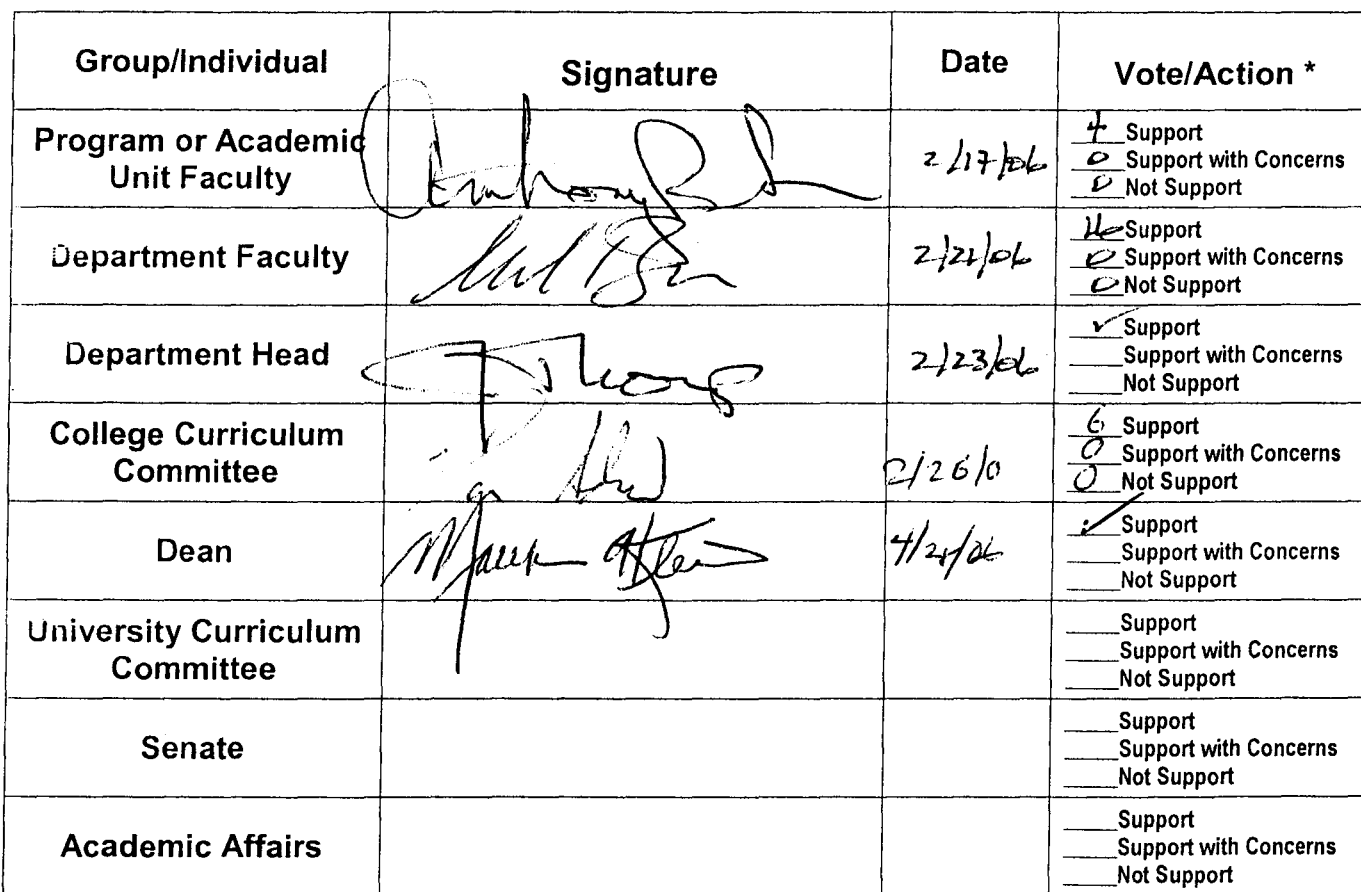 Group/Individual Signature Date Vote/Action *
Program or Academic Unit Faculty
2/17/06
4 Support
0 Support with Concerns
0 Not Support
Department Faculty
Support
0 Support with Concerns
0 Not Support
Department Head
2/23/06
✓ Support
Support with Concerns
Not Support
College Curriculum
Committee
2/26/0
6 Support
0 Support with Concerns
0 Not Support
Dean
✓ Support
Support with Concerns
Not Support
University Curriculum
Committee
Support
Support with Concerns
Not Support
Senate
Support
Support with Concerns
Not Support
Academic Affairs
Support
Support with Concerns
Not Support